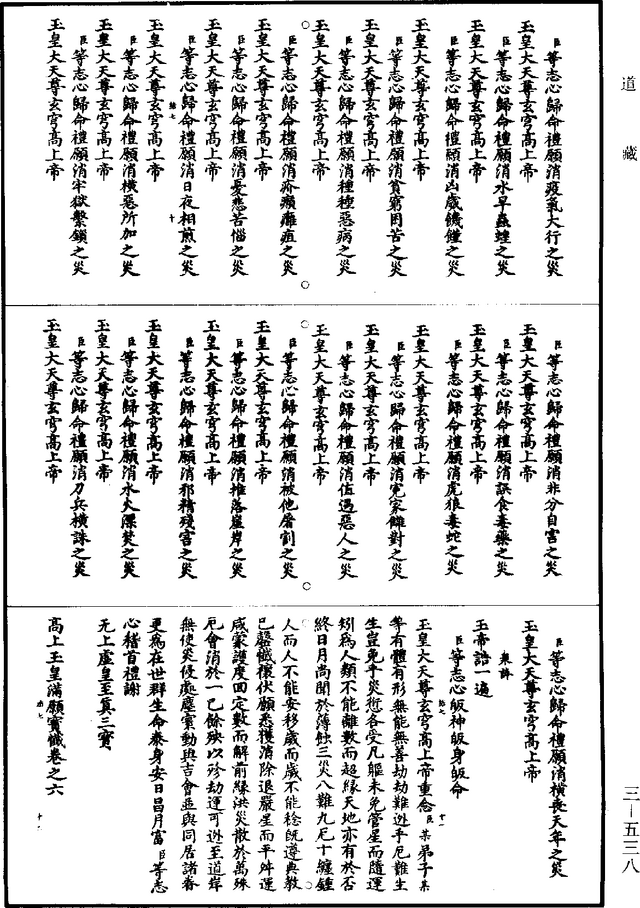 道藏
臣等志心歸命禮願消疫氣大行之災
玉皇大天尊玄穹高上帝
臣等志心歸命禮願消水旱蟲蝗之災
玉皇大天尊玄穹高上帝
臣等志心歸命禮願消凶歲饑饉之災
玉皇大天尊玄穹高上帝
臣等志心歸命禮願消貧窮困苦之災
玉皇大天尊玄穹高上帝
臣等志心歸命禮願消種種惡病之災
玉皇大天尊玄穹高上帝
臣等志心歸命禮願消疥癩癰疽之災
玉皇大天尊玄穹高上帝
臣等志心歸命禮願消憂悲苦惱之災
玉皇大天尊玄穹高上帝
臣等志心歸命禮願消日夜相煎之災
玉皇大天尊玄穹高上帝
臣等志心歸命禮願消橫惡所加之災
玉皇大天尊玄穹高上帝
臣等志心歸命禮願消牢獄繫鎖之災
玉皇大天尊玄穹高上帝
臣等志心歸命禮願消非分自害之災
玉皇大天尊玄穹高上帝
臣等志心歸命禮願消誤食毒藥之災
玉皇大天尊玄穹高上帝
臣等志心歸命禮願消虎狼毒蛇之災
玉皇大天尊玄穹高上帝
臣等志心歸命禮願消冤家讎對之災
玉皇大天尊玄穹高上帝
臣等志心歸命禮願消值遇惡人之災
玉皇大天尊玄穹高上帝
臣等志心歸命禮願消被他屠割之災
玉皇大天尊玄穹高上帝
臣等志心歸命禮願消推落崖岸之災
玉皇大天尊玄穹高上帝
臣等志心歸命禮願消邪精殘害之災
玉皇大天尊玄穹高上帝
臣等志心歸命禮願消水火漂焚之災
玉皇大天尊玄穹高上帝
臣等志心歸命禮願消刀兵橫誅之災
玉皇大天尊玄穹高上帝
臣等志心歸命禮願消橫喪天年之災
玉皇大天尊玄穹高上帝
衆誦
玉帝誥一遍
臣等志心皈神皈身皈命
玉皇大天尊玄穹高上帝重念臣某弟子某
等有體有形無能無善劫劫難逃乎厄難生
生豈免乎災愆各受凡軀未免管星而隨運
矧為人類不能離數而超緣天地亦有於否
終日月尚聞於薄蝕三災八難九厄十纏鍾
人而人不能安移歲而歲不能稔既遵典教
已罄懺禳伏願悉獲消除退嚴星而平舛運
咸蒙護度回定數而解前緣洪災散於萬殊
厄會消於一已餘殃以殄劫運可逃至道岸
無使災侵處塵寰動與吉會亟與同居諸眷
更為在世群生命泰身安日昌月富臣等志
心稽首禮謝
无上虛皇至真三寶
高上玉皇滿願寶懺卷之六
三—五三八